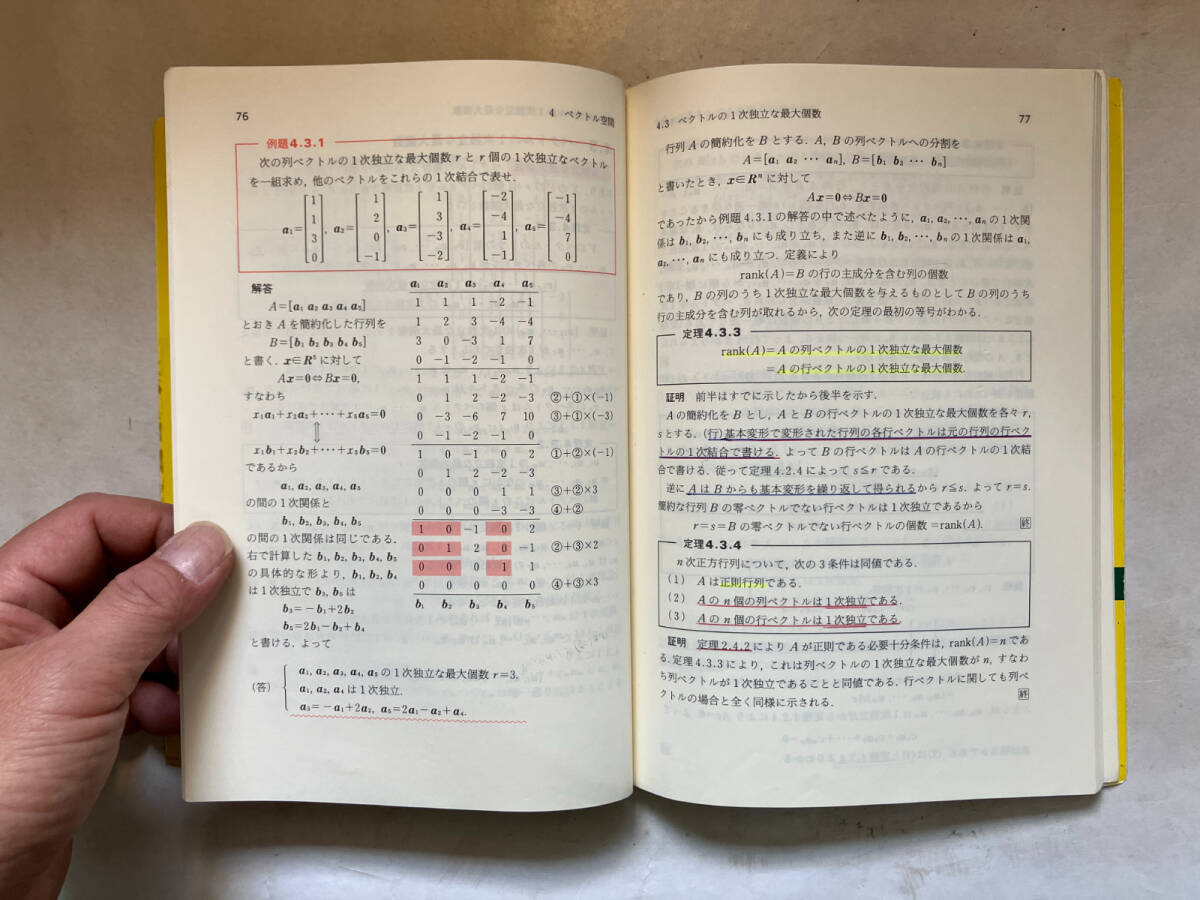 76
4 ベクトル空間
例題4.3.1
次の列ベクトルの1次独立な最大個数 r と r 個の1次独立なベクトル
を一組求め, 他のベクトルをこれらの1次結合で表せ.
a₁=[1 1 3 0], a₂=[1 2 0 −1], a₃=[1 3 −3 −2], a₄=[−2 −4 1 −1], a₅=[−1 −4 7 0]
解答
A=[a₁ a₂ a₃ a₄ a₅]
とおき A を簡約化した行列を
B=[b₁ b₂ b₃ b₄ b₅]
と書く. x∈R⁵ に対して
Ax=0⇔Bx=0,
すなわち
x₁a₁+x₂a₂+···+x₅a₅=0
⇕
x₁b₁+x₂b₂+···+x₅b₅=0
であるから
a₁, a₂, a₃, a₄, a₅
の間の1次関係と
b₁, b₂, b₃, b₄, b₅
の間の1次関係は同じである.
右で計算した b₁, b₂, b₃, b₄, b₅
の具体的な形より, b₁, b₂, b₄
は1次独立で b₃, b₅ は
b₃=−b₁+2b₂
b₅=2b₁−b₂+b₄
と書ける. よって
a₁ a₂ a₃ a₄ a₅
1 1 1 −2 −1
1 2 3 −4 −4
3 0 −3 1 7
0 −1 −2 −1 0
1 1 1 −2 −1
0 1 2 −2 −3 ②+①×(−1)
0 −3 −6 7 10 ③+①×(−3)
0 −1 −2 −1 0
1 0 −1 0 2 ①+②×(−1)
0 1 2 −2 −3
0 0 0 1 1 ③+②×3
0 0 0 −3 −3 ④+②
1 0 −1 0 2
0 1 2 0 −1 ②+③×2
0 0 0 1 1
0 0 0 0 0 ④+③×3
b₁ b₂ b₃ b₄ b₅
(答)
a₁, a₂, a₃, a₄, a₅ の1次独立な最大個数 r=3.
a₁, a₂, a₄ は1次独立.
a₃=−a₁+2a₂, a₅=2a₁−a₂+a₄.
4.3 ベクトルの1次独立な最大個数
77
行列 A の簡約化を B とする. A, B の列ベクトルへの分割を
A=[a₁ a₂ ··· aₙ], B=[b₁ b₂ ··· bₙ]
と書いたとき, x∈Rⁿ に対して
Ax=0⇔Bx=0
であったから例題4.3.1の解答の中で述べたように, a₁, a₂, ···, aₙ の1次関
係は b₁, b₂, ···, bₙ にも成り立ち, また逆に b₁, b₂, ···, bₙ の1次関係は a₁,
a₂, ···, aₙ にも成り立つ. 定義により
rank(A)=B の行の主成分を含む列の個数
であり, B の列のうち1次独立な最大個数を与えるものとして B の列のうち
行の主成分を含む列が取れるから, 次の定理の最初の等号がわかる.
定理4.3.3
rank(A)=A の列ベクトルの1次独立な最大個数
=A の行ベクトルの1次独立な最大個数.
証明 前半はすでに示したから後半を示す.
A の簡約化を B とし, A と B の行ベクトルの1次独立な最大個数を各々 r,
s とする. (行)基本変形で変形された行列の各行ベクトルは元の行列の行ベク
トルの1次結合で書ける. よって B の行ベクトルは A の行ベクトルの1次結
合で書ける. 従って定理4.2.4によって s≦r である.
逆に A は B からも基本変形を繰り返して得られるから r≦s. よって r=s.
簡約な行列 B の零ベクトルでない行ベクトルは1次独立であるから
r=s=B の零ベクトルでない行ベクトルの個数=rank(A). 終
定理4.3.4
n 次正方行列について, 次の3条件は同値である.
(1) A は正則行列である.
(2) A の n 個の列ベクトルは1次独立である.
(3) A の n 個の行ベクトルは1次独立である.
証明 定理2.4.2により A が正則である必要十分条件は, rank(A)=n であ
る. 定理4.3.3により, これは列ベクトルの1次独立な最大個数が n, すなわ
ち列ベクトルが1次独立であることと同値である. 行ベクトルに関しても列ベ
クトルの場合と全く同様に示される. 終